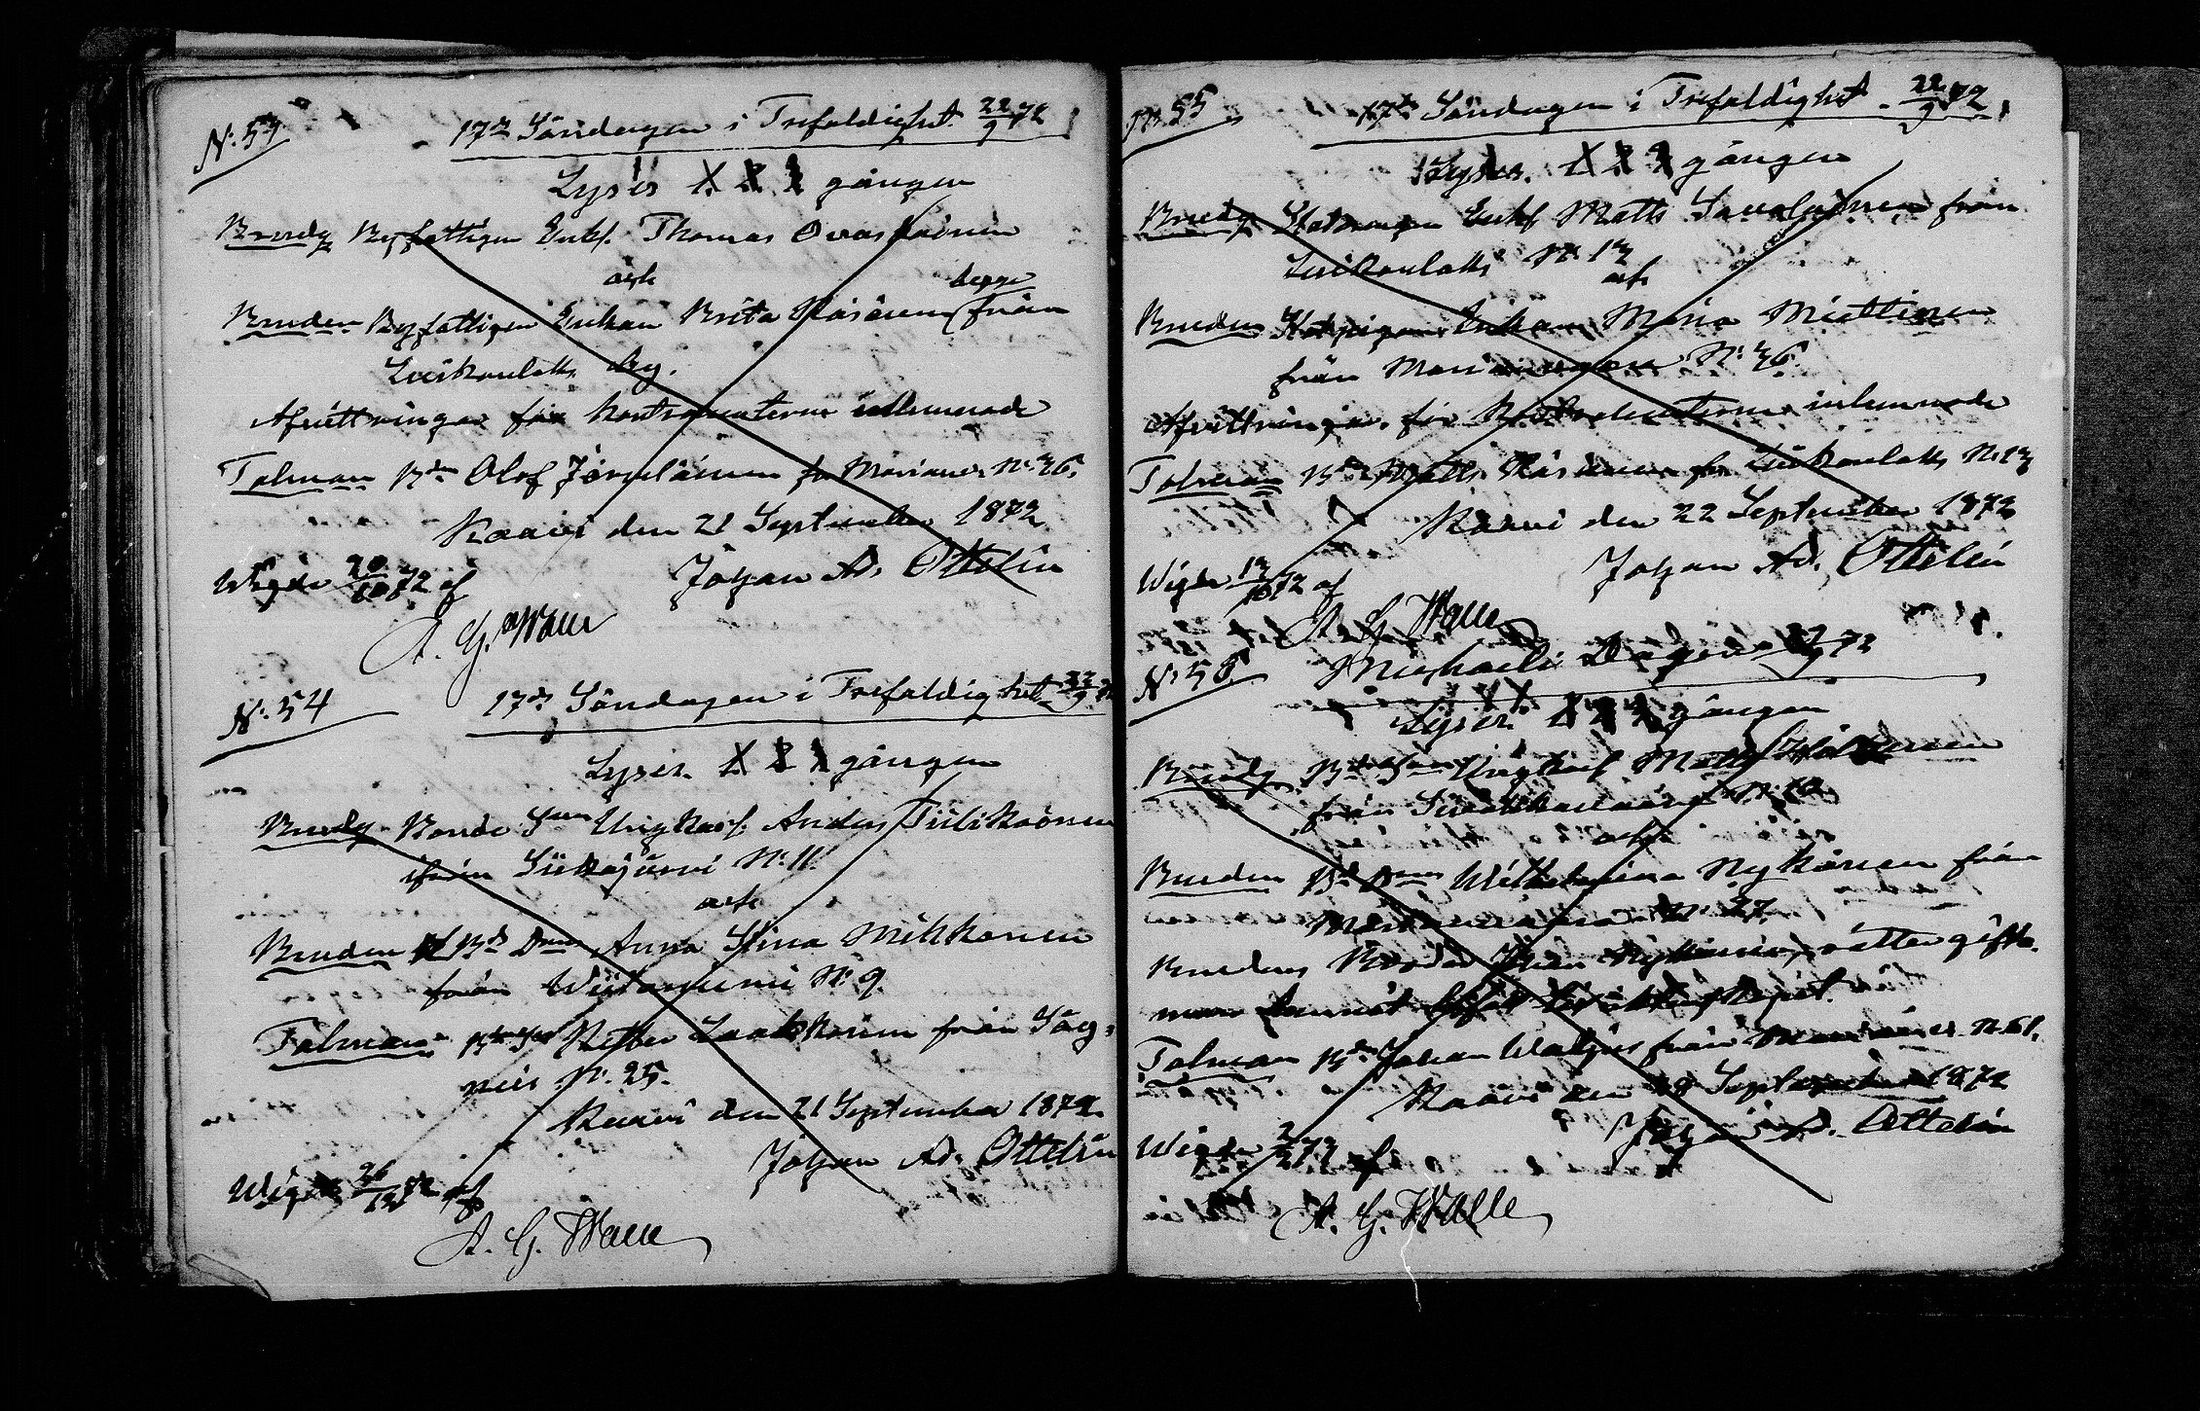 N: 53
17de Söndagen i Trefaldighet 22/9 72
Lyses 1. 2. 3 gången
Brudg Byfattigen Enkl. Thomas Ovaskainen
och
Bruden Byfattigen Enkan Brita Räsänen, begge från
Luikonlaks by.
Afvittringar för kontrahenterne inlemnade
Talman Bdn Olof Jörgeläinen fr Marianv. N: 36.
Kaavi den 21 September 1872
Johan Ad. Ottelin
Wigde 20/10 72 af
A. G. Walle
N: 54
17de Söndagen i Trefaldighet 22/9 72
Lyses. 1. 2. 3 gången
Brudg. Bonde Snen Ungkarl. Anders Tiilikainen
ifrån Siikajärvi N: 11.
och
Bruden Bd Dnen Anna Stina Mikkonen
från Wiitaniemi N: 9.
Talman Petter Laakkonen från Säy-
neis N: 25.
Kaavi den 21 September 1872.
Johan Ad. Ottelin
Wigde 26/12 72 af
A. G. Walle
N: 55
17de Söndagen i Trefaldighet 22/9 72
Lyses. 1. 2. 3 gången
Brudg. Enkl Matts Savolainen från
Luikonlaks N: 13
och
Bruden Enkan Maria Miettinen
från N: 36.
Afvittringar för Kontrahenterne inlemnade
Talman Bdn Matts Räsänen fr Luikonlaks N: 13
Kaavi den 22 September 1872
Johan Ad. Ottelin
Wigde 13/10 72 af
A. G. Walle
N: 56
Michaeli Dagen 29/9 72
Lyses. 1 2 3 gången
Brudg. Ungkarl Matts
från
och
Bruden Bd Dnen Wilhelmina Nykänen från
N: 27
Brudens Broder Nykänen, rätter gifto-
man
Talman Bdn Johan Waljus från N: 61.
Kaavi den 28 September 1872
Johan Ad. Ottelin
Wigde 2/2 73 af
A. G. Walle